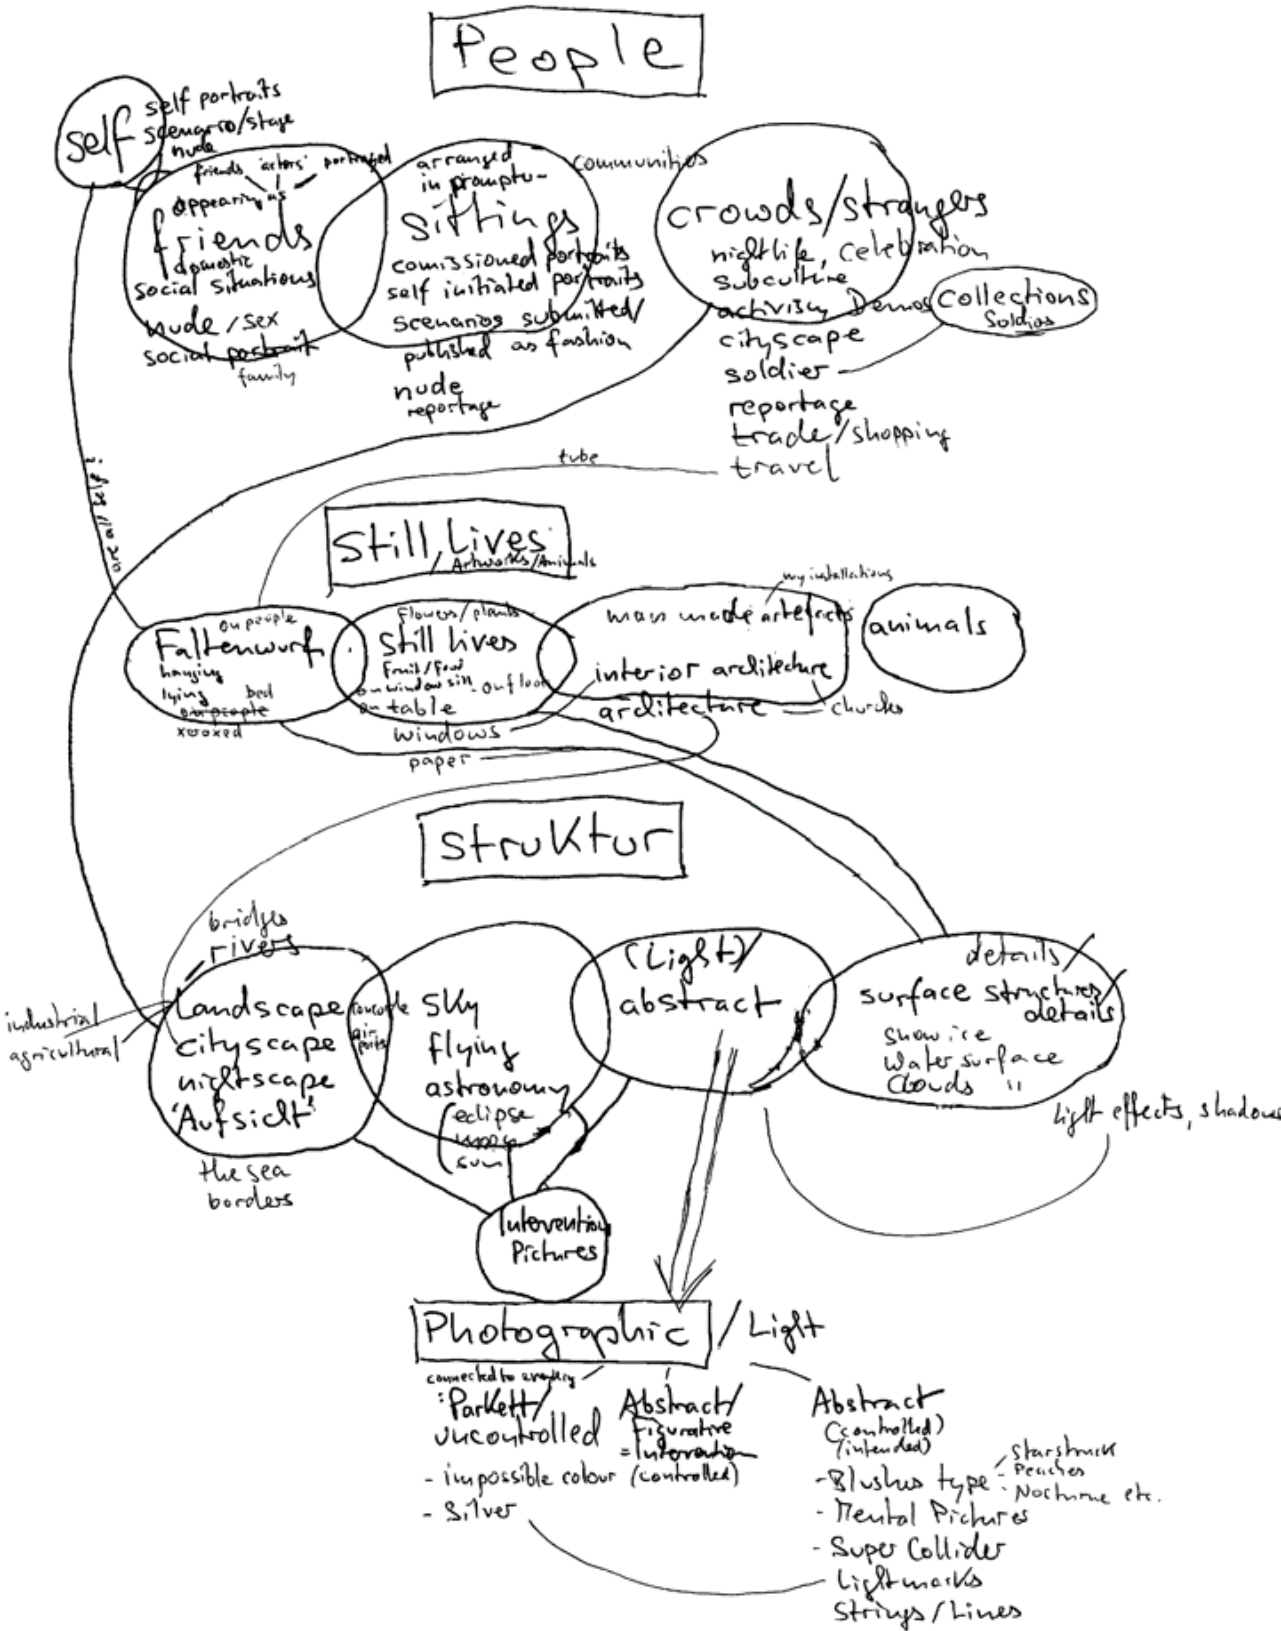 People
self
self portraits
scenario/stage
nude
friends 'actors' portrayed
appearing as
friends
domestic
social situations
nude/sex
social portrait
family
arranged
in promptu-
sittings
comissioned portraits
self initiated portraits
scenarios submitted/
published as fashion
nude
reportage
communities
crowds/strangers
nightlife, celebration
subculture
activism, Demos
cityscape
soldier
reportage
trade/shopping
travel
collections
Soldiers
tube
are all self?
Still Lives
/ Artworks/Animals
on people
Faltenwurf
hanging
lying bed
on people
xeroxed
Flowers/plants
still lives
Fruit/Food
on window sill - on floor
on table
windows
paper
my installations
man made artefacts
interior architecture
architecture
churches
animals
Struktur
bridges
rivers
industrial
agricultural
Landscape
cityscape
nightscape
'Aufsicht'
the sea
borders
concorde
air
ports
Sky
flying
astronomy
(eclipse
moon
sun
(Light)/
abstract
details/
surface structures/
details
snow ice
Water surface
Clouds "
Light effects, shadows
Intervention
Pictures
Photographic / Light
connected to everything
: Parkett/
uncontrolled
- impossible colour
- Silver
Abstract/
Figurative
= Intervention
(controlled)
Abstract
(controlled)
(intended)
- Blushes type - starstruck
- Peaches
- Nocturne etc.
- Mental Pictures
- Super Collider
Lightmarks
Strings/Lines